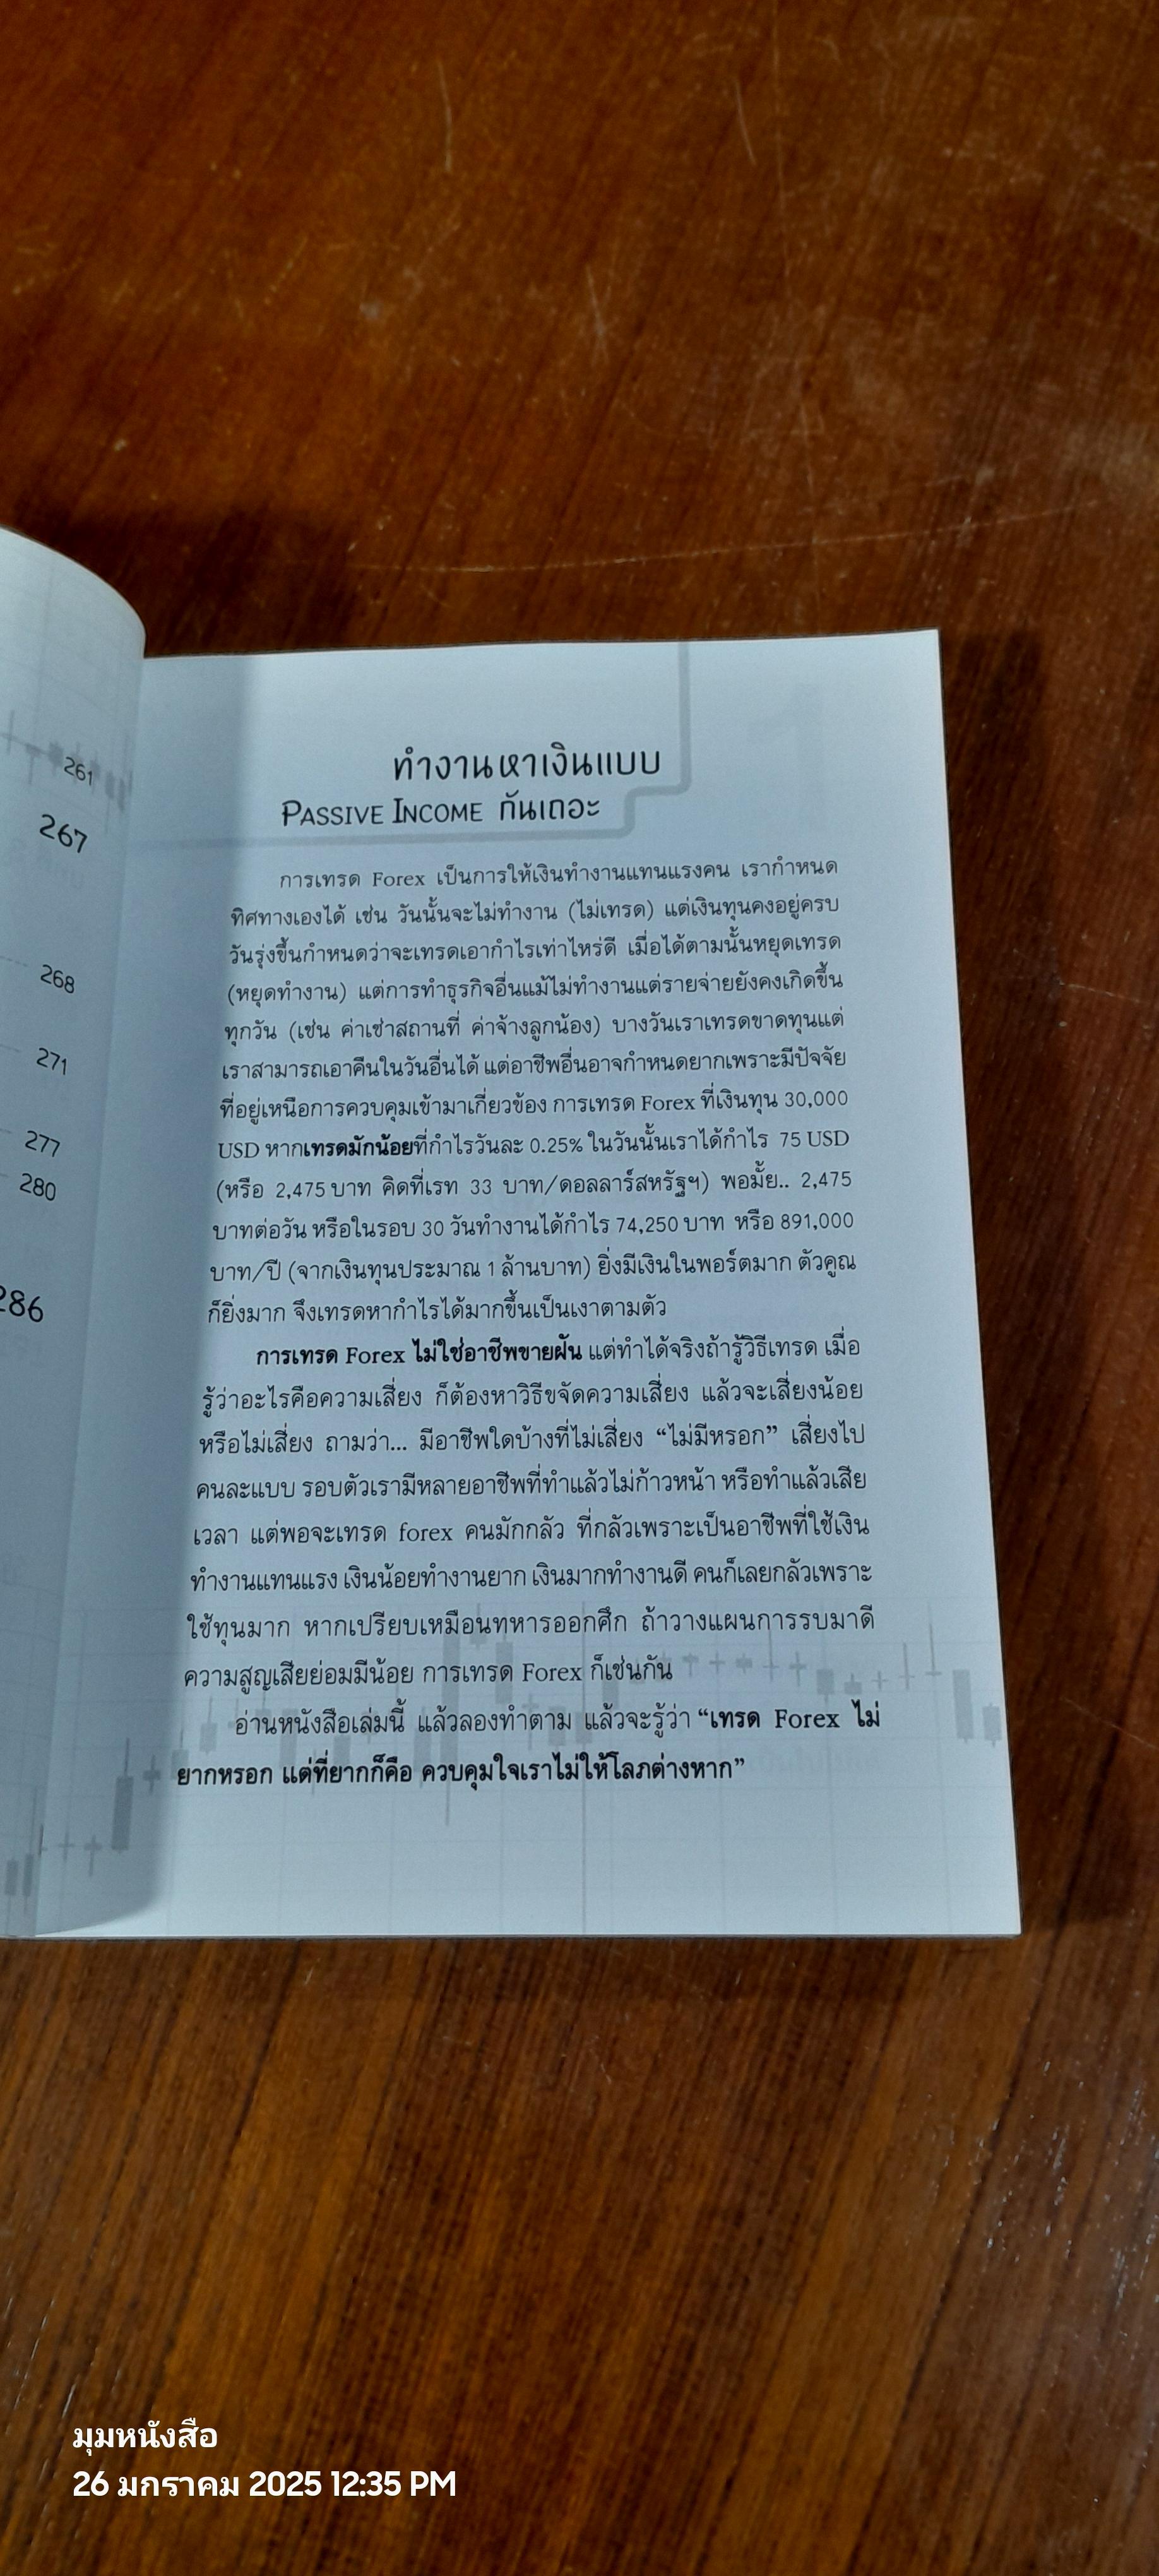 261
267
268
271
277
280
286
ทำงานหาเงินแบบ
PASSIVE INCOME กันเถอะ
การเทรด Forex เป็นการให้เงินทำงานแทนแรงคน เรากำหนด
ทิศทางเองได้ เช่น วันนั้นจะไม่ทำงาน (ไม่เทรด) แต่เงินทุนคงอยู่ครบ
วันรุ่งขึ้นกำหนดว่าจะเทรดเอากำไรเท่าไหร่ดี เมื่อได้ตามนั้นหยุดเทรด
(หยุดทำงาน) แต่การทำธุรกิจอื่นแม้ไม่ทำงานแต่รายจ่ายยังคงเกิดขึ้น
ทุกวัน (เช่น ค่าเช่าสถานที่ ค่าจ้างลูกน้อง) บางวันเราเทรดขาดทุนแต่
เราสามารถเอาคืนในวันอื่นได้ แต่อาชีพอื่นอาจกำหนดยากเพราะมีปัจจัย
ที่อยู่เหนือการควบคุมเข้ามาเกี่ยวข้อง การเทรด Forex ที่เงินทุน 30,000
USD หากเทรดมักน้อยที่กำไรวันละ 0.25% ในวันนั้นเราได้กำไร 75 USD
(หรือ 2,475 บาท คิดที่เรท 33 บาท/ดอลลาร์สหรัฐฯ) พอมั้ย.. 2,475
บาทต่อวัน หรือในรอบ 30 วันทำงานได้กำไร 74,250 บาท หรือ 891,000
บาท/ปี (จากเงินทุนประมาณ 1 ล้านบาท) ยิ่งมีเงินในพอร์ตมาก ตัวคูณ
ก็ยิ่งมาก จึงเทรดหากำไรได้มากขึ้นเป็นเงาตามตัว
การเทรด Forex ไม่ใช่อาชีพขายฝัน แต่ทำได้จริงถ้ารู้วิธีเทรด เมื่อ
รู้ว่าอะไรคือความเสี่ยง ก็ต้องหาวิธีขจัดความเสี่ยง แล้วจะเสี่ยงน้อย
หรือไม่เสี่ยง ถามว่า... มีอาชีพใดบ้างที่ไม่เสี่ยง “ไม่มีหรอก” เสี่ยงไป
คนละแบบ รอบตัวเรามีหลายอาชีพที่ทำแล้วไม่ก้าวหน้า หรือทำแล้วเสีย
เวลา แต่พอจะเทรด forex คนมักกลัว ที่กลัวเพราะเป็นอาชีพที่ใช้เงิน
ทำงานแทนแรง เงินน้อยทำงานยาก เงินมากทำงานดี คนก็เลยกลัวเพราะ
ใช้ทุนมาก หากเปรียบเหมือนทหารออกศึก ถ้าวางแผนการรบมาดี
ความสูญเสียย่อมมีน้อย การเทรด Forex ก็เช่นกัน
อ่านหนังสือเล่มนี้ แล้วลองทำตาม แล้วจะรู้ว่า “เทรด Forex ไม่
ยากหรอก แต่ที่ยากก็คือ ควบคุมใจเราไม่ให้โลภต่างหาก”
มุมหนังสือ
26 มกราคม 2025 12:35 PM